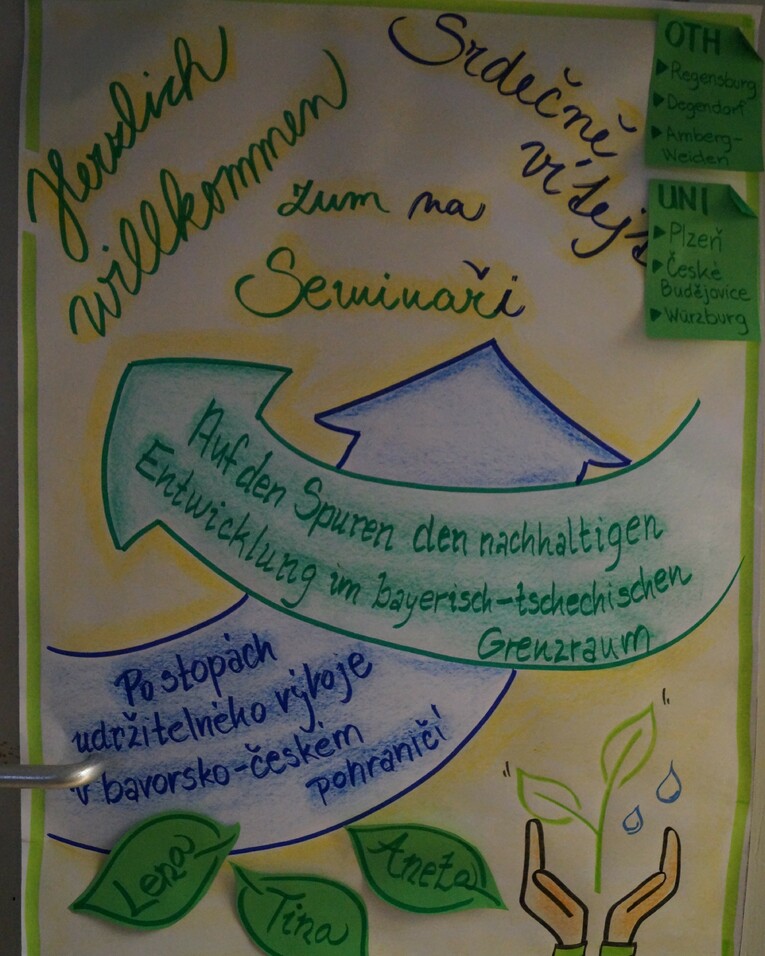 Herzlich
willkommen
Srdečně
vítejte
zum na
Seminaři
OTH
▶ Regensburg
▶ Degendorf
▶ Amberg-
Weiden
UNI
▶ Plzeň
▶ České
Budějovice
▶ Würzburg
Auf den Spuren den nachhaltigen
Entwicklung im bayerisch-tschechischen
Grenzraum
Po stopách
udržitelného vývoje
v bavorsko-českém
pohraničí
Lena
Tina
Aneta